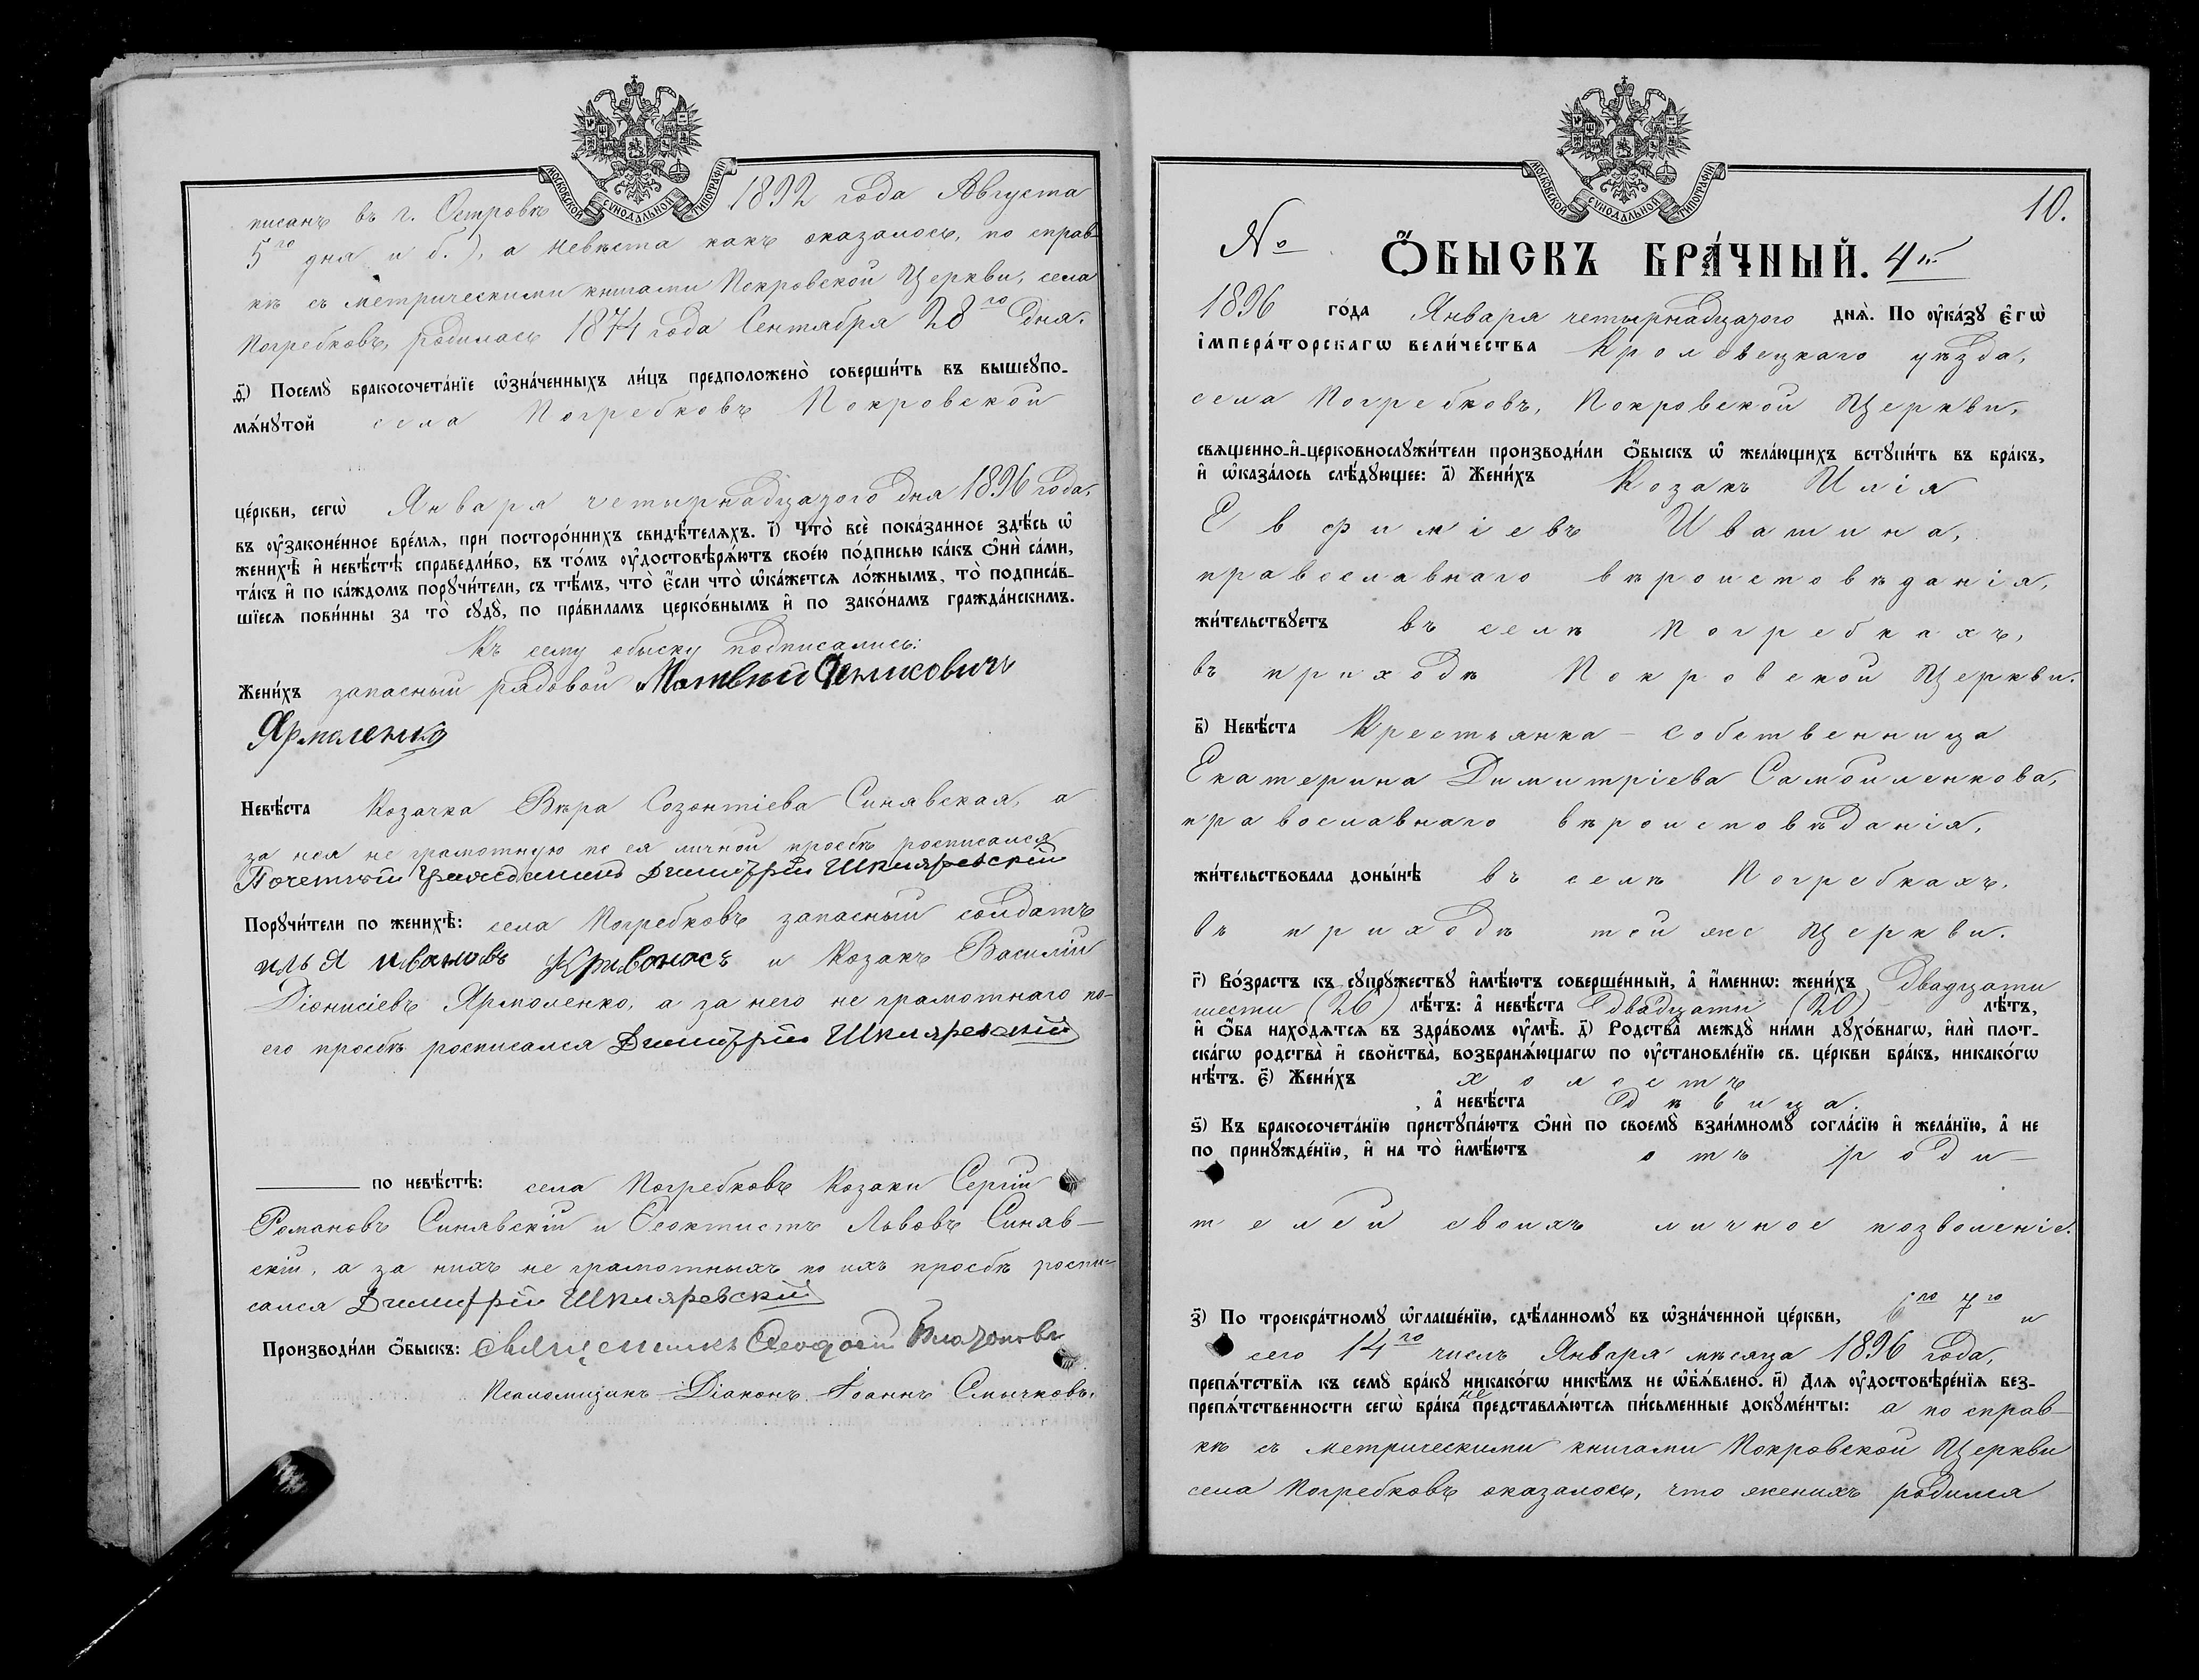 МОСКОВСКОЙ СѴНОДАЛЬНОЙ ТИПОГРАФІИ
писанъ въ г. Островѣ 1892 года Августа
5го дня и б.), а невѣста какъ оказалось, по справ-
кѣ съ метрическими книгами Покровской Церкви, села
Погребковъ, родилась 1874 года Сентября 28го дня.
ѳ҃) Посемꙋ̀ бракосочета́нїе ѡ҆зна́ченныхъ ли́цъ предположено̀ соверши́ть въ вышеꙋпо-
мѧ́нꙋтой села Погребковъ Покровской
це́ркви, сегѡ̀ Января четырнадцатого дня 1896 года,
въ ᲂу҆законе́нное вре́мѧ, при посторо́ннихъ свидѣ́телѧхъ. і҃) Что̀ всѐ пока́занное здѣ́сь ѡ҆
женихѣ̀ и҆ невѣ́стѣ справедли́во, въ то́мъ ᲂу҆достовѣрѧ́ютъ свое́ю по́дписью ка́къ ѻ҆нѝ са́ми,
та́къ и҆ по ка́ждомъ порꙋчи́тели, съ тѣ́мъ, что̀ є҆́сли что̀ ѡ҆ка́жетсѧ ло́жнымъ, то̀ подписа́в-
шїесѧ пови́нны за то̀ сꙋдꙋ̀, по пра́виламъ церко́внымъ и҆ по зако́намъ гражда́нскимъ.
Къ сему обыску подписались:
Жени́хъ запасный рядовой Матвѣй Денисовичъ
Ярмоленко
Невѣ́ста Козачка Вѣра Созонтіева Синявская, а
за нея не грамотную по ея личной просбѣ росписался
Почетный Гражданинъ Димитрій Шкляревскій
Порꙋчи́тели по женихѣ̀: села Погребковъ запасный солдатъ
илья ивановъ Кривоносъ и Козакъ Василій
Діонисіевъ Ярмоленко, а за него не грамотного по-
его просбѣ росписался Димитрій Шкляревскій
по невѣ́стѣ: села Погребковъ Козаки Сергій
Романовъ Синявскій и Ѳеоктистъ Львовъ Синяв-
скій, а за нихъ не грамотныхъ по ихъ просбѣ роспи-
сался Димитрій Шкляревскій
Производи́ли ѻ҆́быскъ: священникъ Ѳеодосій
Псаломщикъ Діаконъ Іоаннъ Смычковъ.
МОСКОВСКОЙ СѴНОДАЛЬНОЙ ТИПОГРАФІИ
10.
№ Ѻ҆́БЫСКЪ БРА́ЧНЫЙ. 4й
1896 го́да Января четырнадцатого днѧ̀. По ᲂу҆ка́зꙋ є҆гѡ̀
і҆мпера́торскагѡ вели́чества Кролевецкаго уѣзда,
села Погребковъ, Покровской Церкви,
свѧщенно-и҆-церковнослꙋжи́тели производи́ли ѻ҆́быскъ ѡ҆ жела́ющихъ встꙋпи́ть въ бра́къ,
и҆ ѡ҆каза́лось слѣ́дꙋющее: а҃) Жени́хъ Козакъ Илія
Евфиміевъ Иватина,
православнаго вѣроисповѣданія,
жи́тельствꙋетъ въ селѣ Погребкахъ,
въ приходѣ Покровской Церкви.
в҃) Невѣ́ста Крестьянка - собственница
Екатерина Димитріева Самойленкова,
православнаго вѣроисповѣданія,
жи́тельствовала доны́нѣ въ селѣ Погребкахъ,
въ приходѣ той же Церкви.
г҃) Во́зрастъ къ сꙋпрꙋ́жествꙋ и҆мѣ́ютъ соверше́нный, а҆ и҆́меннѡ: жени́хъ двадцати
шести (26) лѣ́тъ: а҆ невѣ́ста двадцати (20) лѣ́тъ,
и҆ ѻ҆́ба нахо́дѧтсѧ въ здра́вомъ ᲂу҆мѣ̀. д҃) Родства̀ междꙋ̀ ни́ми дꙋхо́внагѡ, и҆лѝ плот-
ска́гѡ родства̀ и҆ свойства̀, возбранѧ́ющагѡ по ᲂу҆становле́нїю св. це́ркви бра́къ, никако́гѡ
нѣ́тъ. є҃) Жени́хъ холостъ
, а҆ невѣ́ста дѣвица.
ѕ҃) Къ бракосочета́нїю пристꙋпа́ютъ ѻ҆нѝ по своемꙋ̀ взаи́мномꙋ согла́сїю и҆ жела́нїю, а҆ не
по принꙋжде́нїю, и҆ на то̀ и҆мѣ́ютъ отъ роди-
телей своихъ личное позволеніе.
з҃) По троекра́тномꙋ ѡ҆глаше́нїю, сдѣ́ланномꙋ въ ѡ҆зна́ченной це́ркви, 6го 7го и
сего 14го числъ Января мѣсяца 1896 года,
препѧ́тствїѧ къ семꙋ̀ бра́кꙋ никако́гѡ никѣ́мъ не ѡ҆б̾ѧ́влено. и҃) Длѧ ᲂу҆достовѣре́нїѧ без-
препѧ́тственности сегѡ̀ бра́ка не представлѧ́ютсѧ пи́сьменные докꙋме́нты: а по справ-
кѣ съ метрическими книгами Покровской Церкви
села Погребковъ оказалось, что женихъ родился